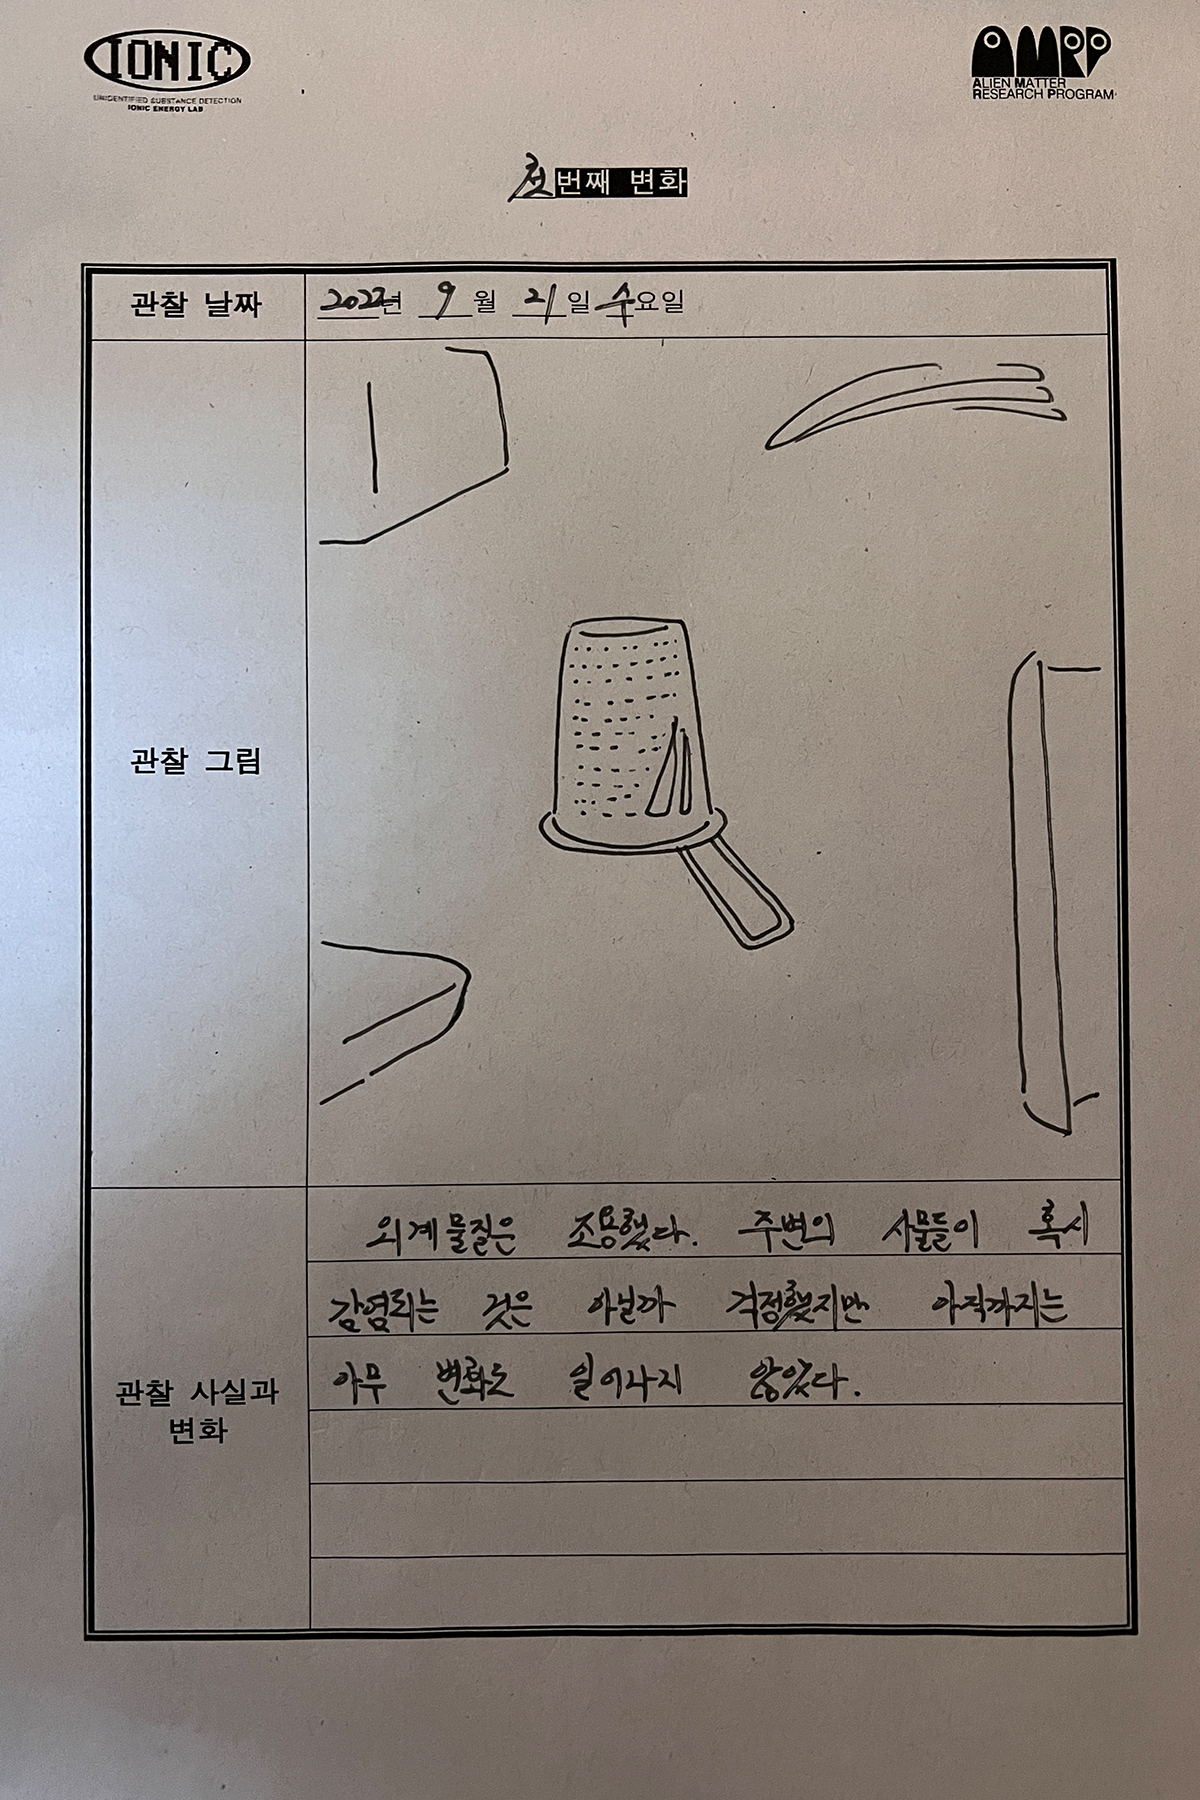 IONIC
UNIDENTIFIED SUBSTANCE DETECTION
IONIC ENERGY LAB
AMRP
ALIEN MATTER
RESEARCH PROGRAM
첫번째 변화
관찰 날짜
2022년 9월 21일 수요일
관찰 그림
관찰 사실과
변화
외계물질은 조용했다. 주변의 사물들이 혹시
감염되는 것은 아닐까 걱정했지만 아직까지는
아무 변화도 일어나지 않았다.